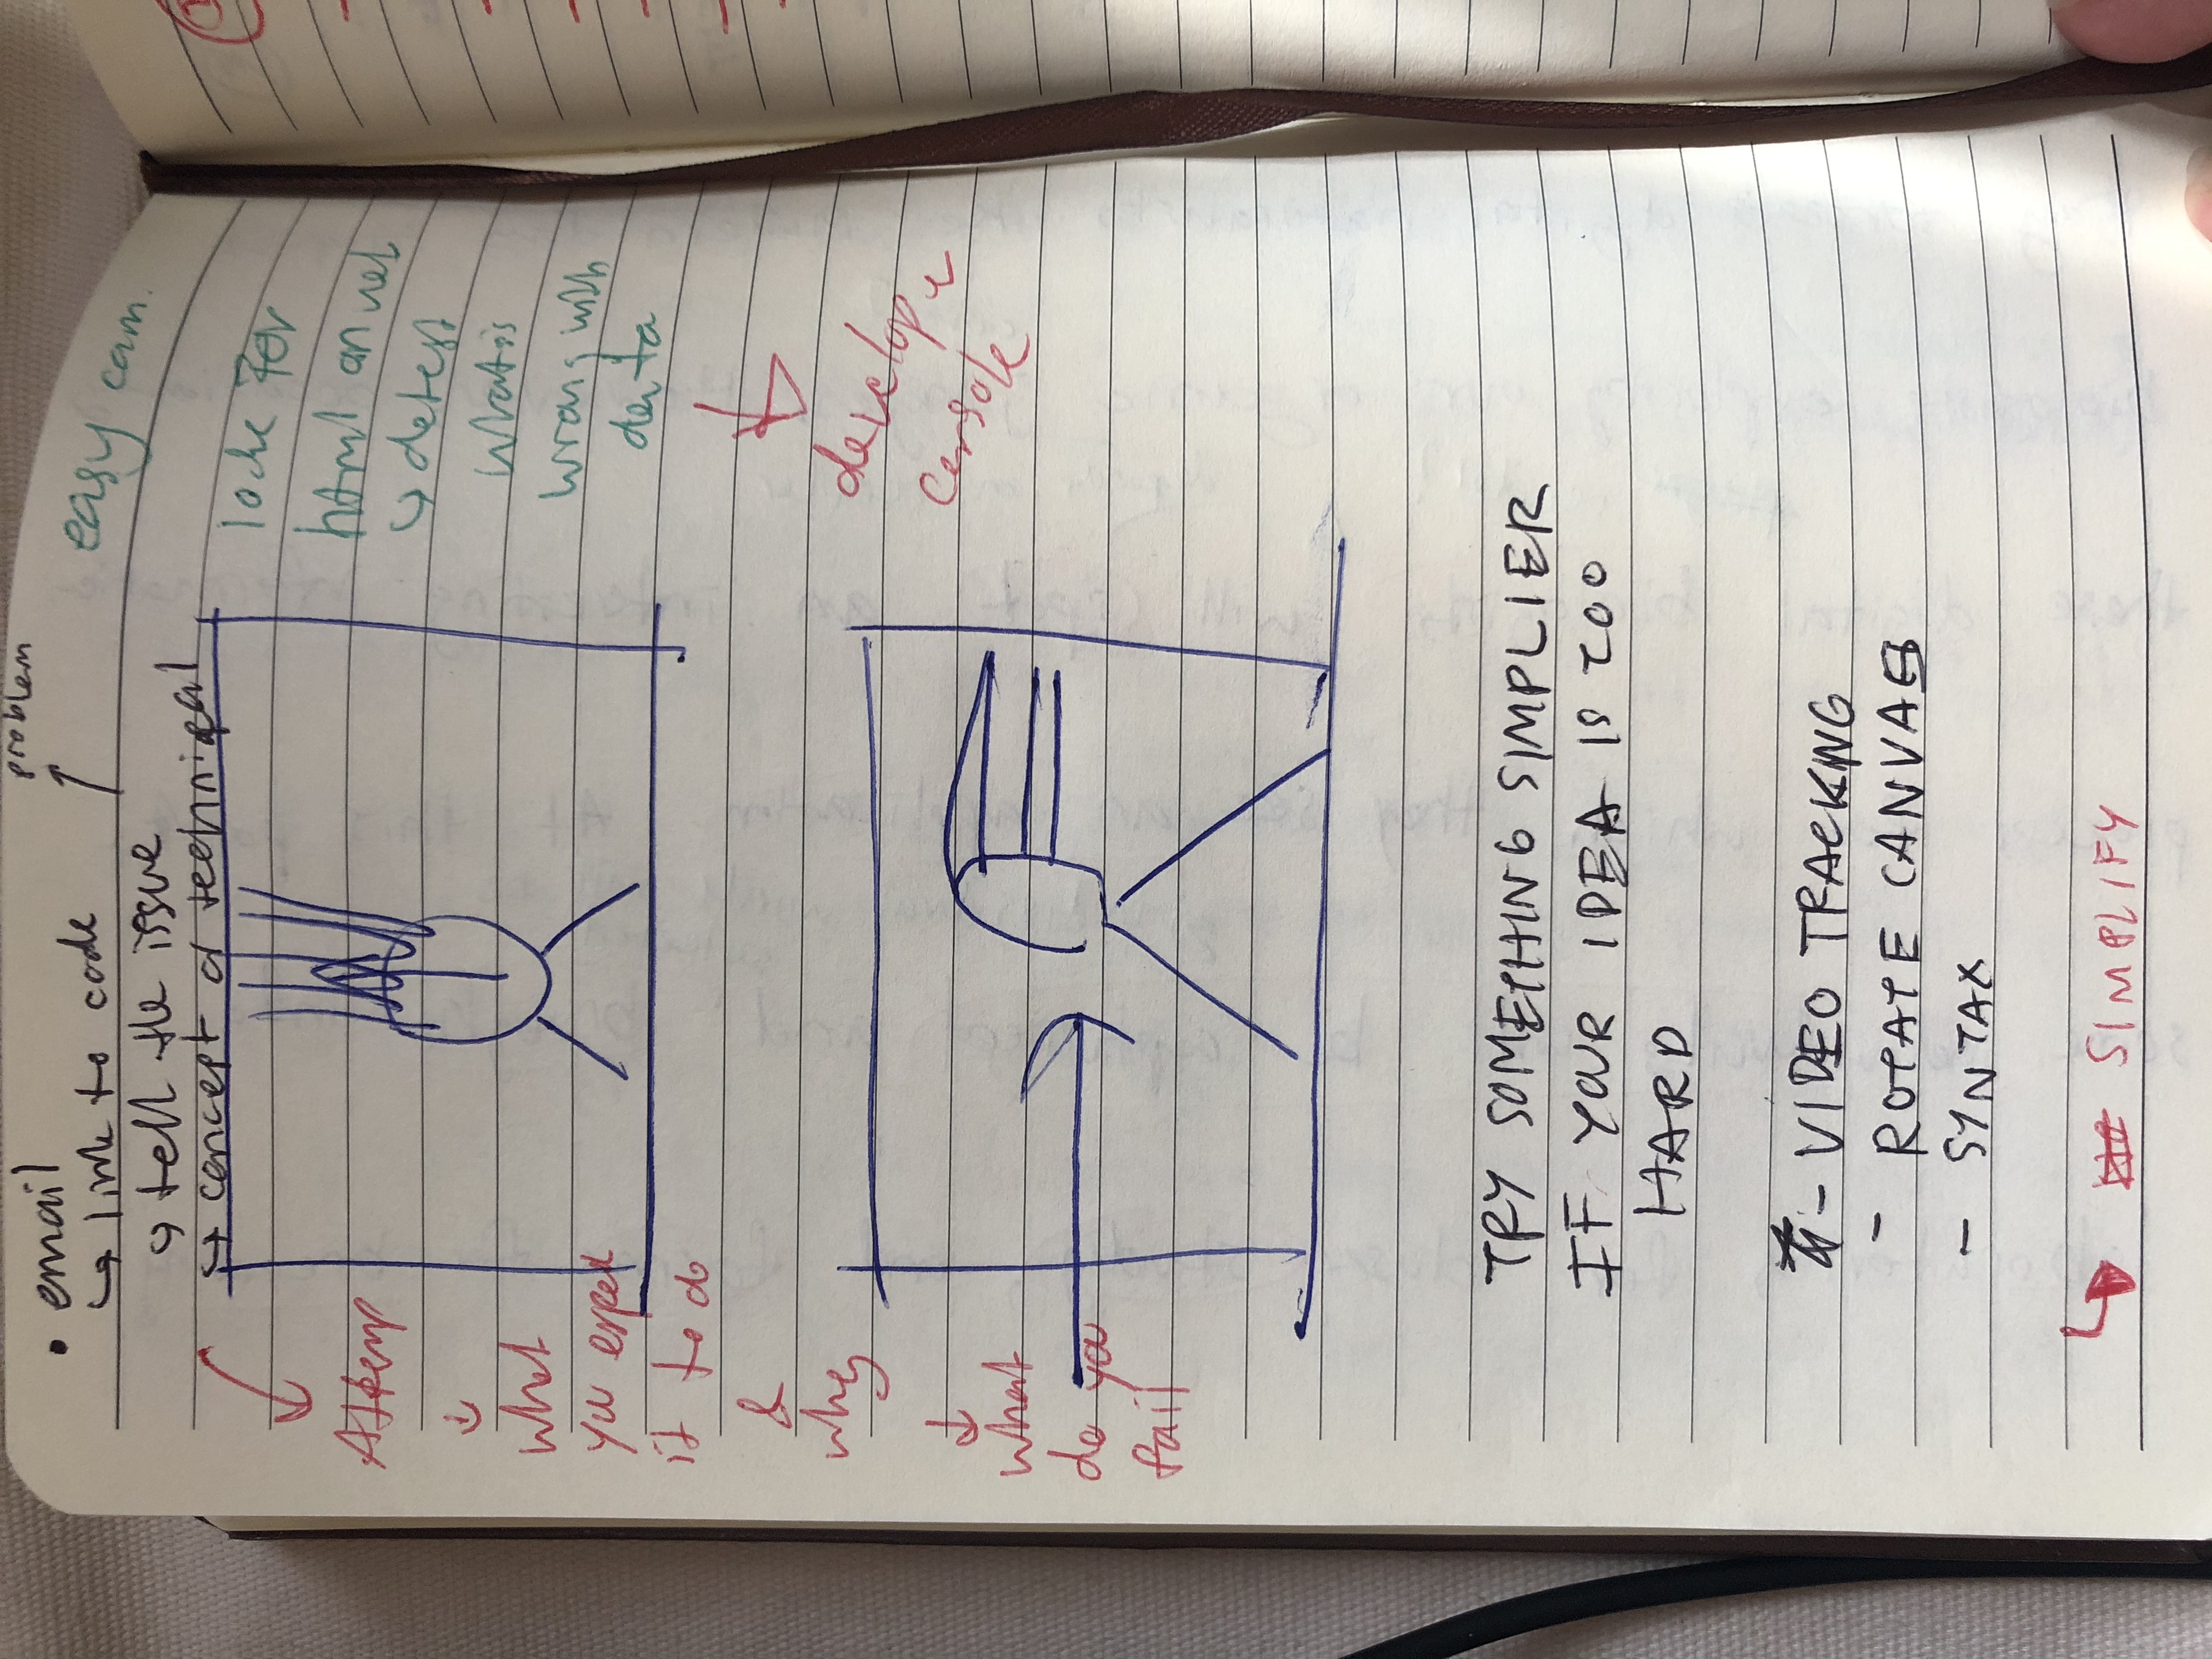 problem
• email
↳ link to code
↳ tell the issue
↳ concept or technical
easy cam.
Attemp
↓
what
you expect
it to do
&
why
↓
what
do you
fail
html on
↳ detest
what is
wrong with
data
↓
developer
console
TRY SOMETHING SIMPLIER
IF YOUR IDEA IS TOO
HARD
- VIDEO TRACKING
- ROTATE CANVAS
- SYNTAX
↳ SIMPLIFY